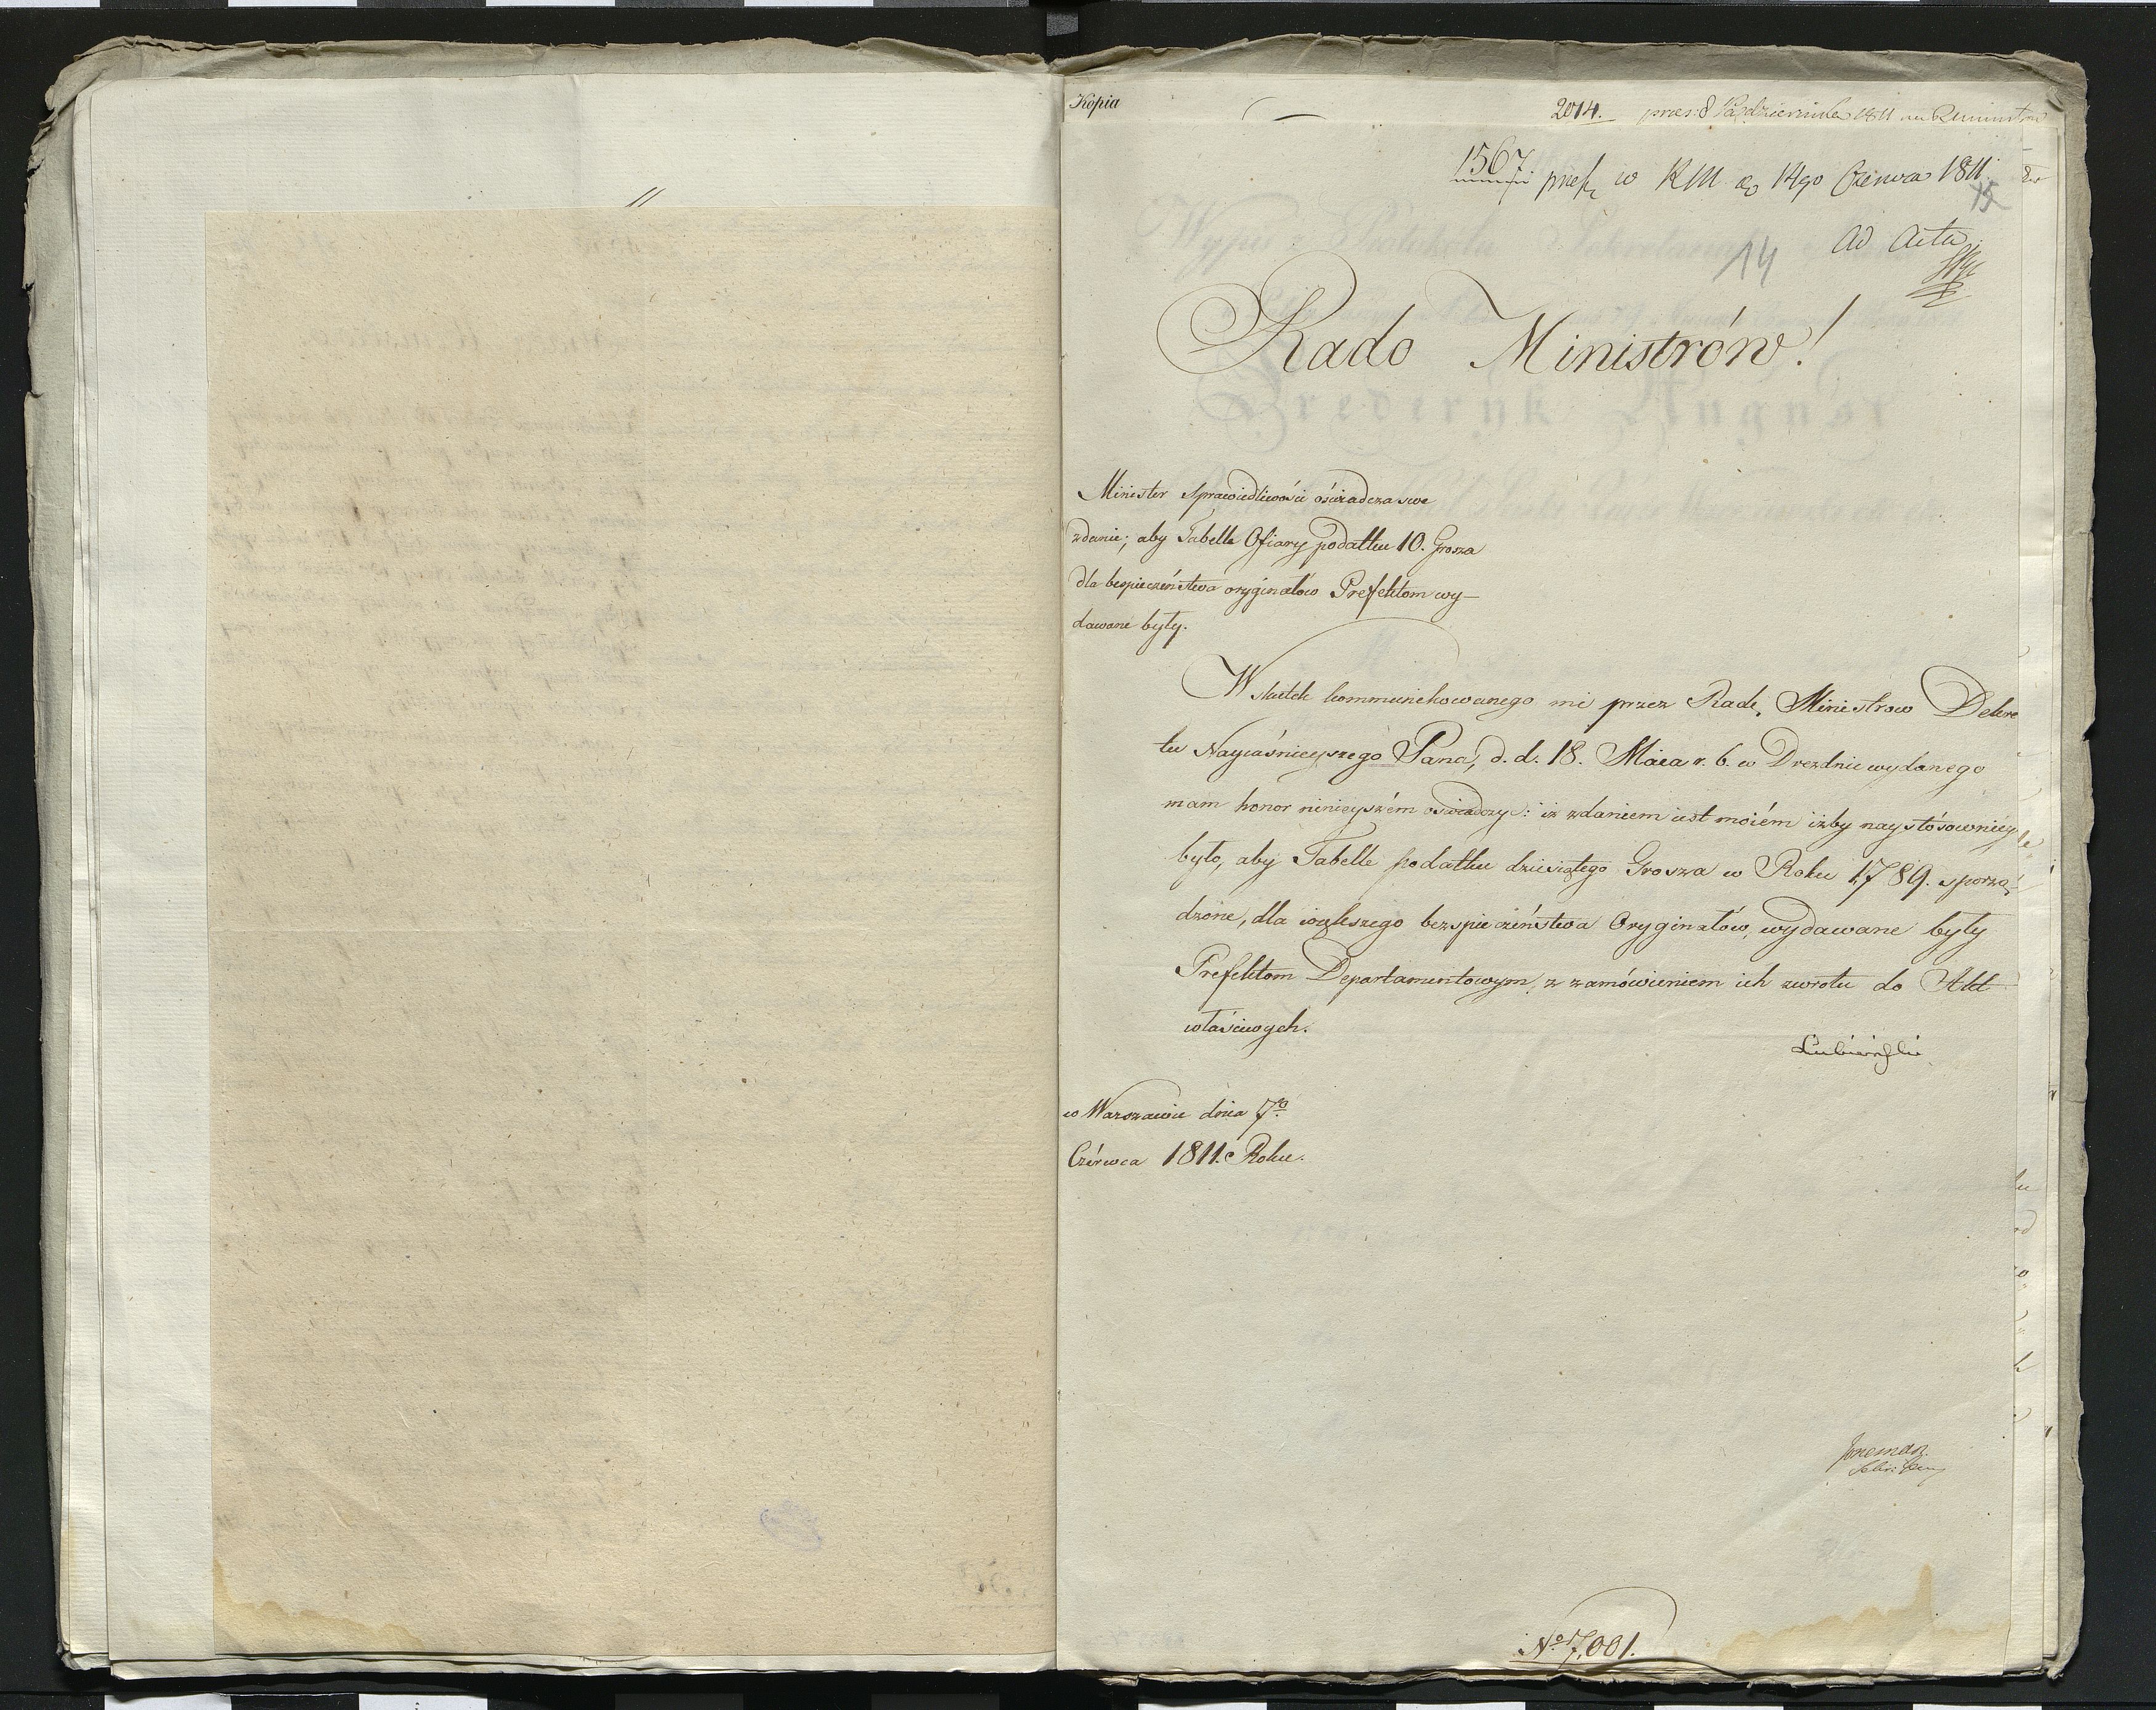 Kopia
2014. pres: 8 Października 1811 na R Ministrów
1567 pres. w RM do 14go Czerwca 1811.
15
ad Acta
14
Rado Ministrów!
Minister Sprawiedliwości oświadcza swe
zdanie; aby Tabelle Ofiary podatku 10. Grosza
dla bespieczeństwa oryginałow Prefektom wy-
dawane były.
W skutek kommunikowanego mi przez Radę Ministrow Dekre
tu Nayiaśnieyszego Pana, d. d. 18. Maia r. b. w Dreznie wydanego
mam honor ninieyszém oswiadczyć: iż zdaniem iest moiém iżby naystósowniey
było, aby Tabelle podatku dziesiątego Grosza w Roku 1789. sporzą-
dzone, dla większego bezspieczeństwa Oryginałów, wydawane były
Prefektom Departamentowym, z zamówieniem ich zwrotu do Akt
właściwych.
Łubieński
w Warszawie dnia 7o
Czérwca 1811. Roku.
No 7,001.